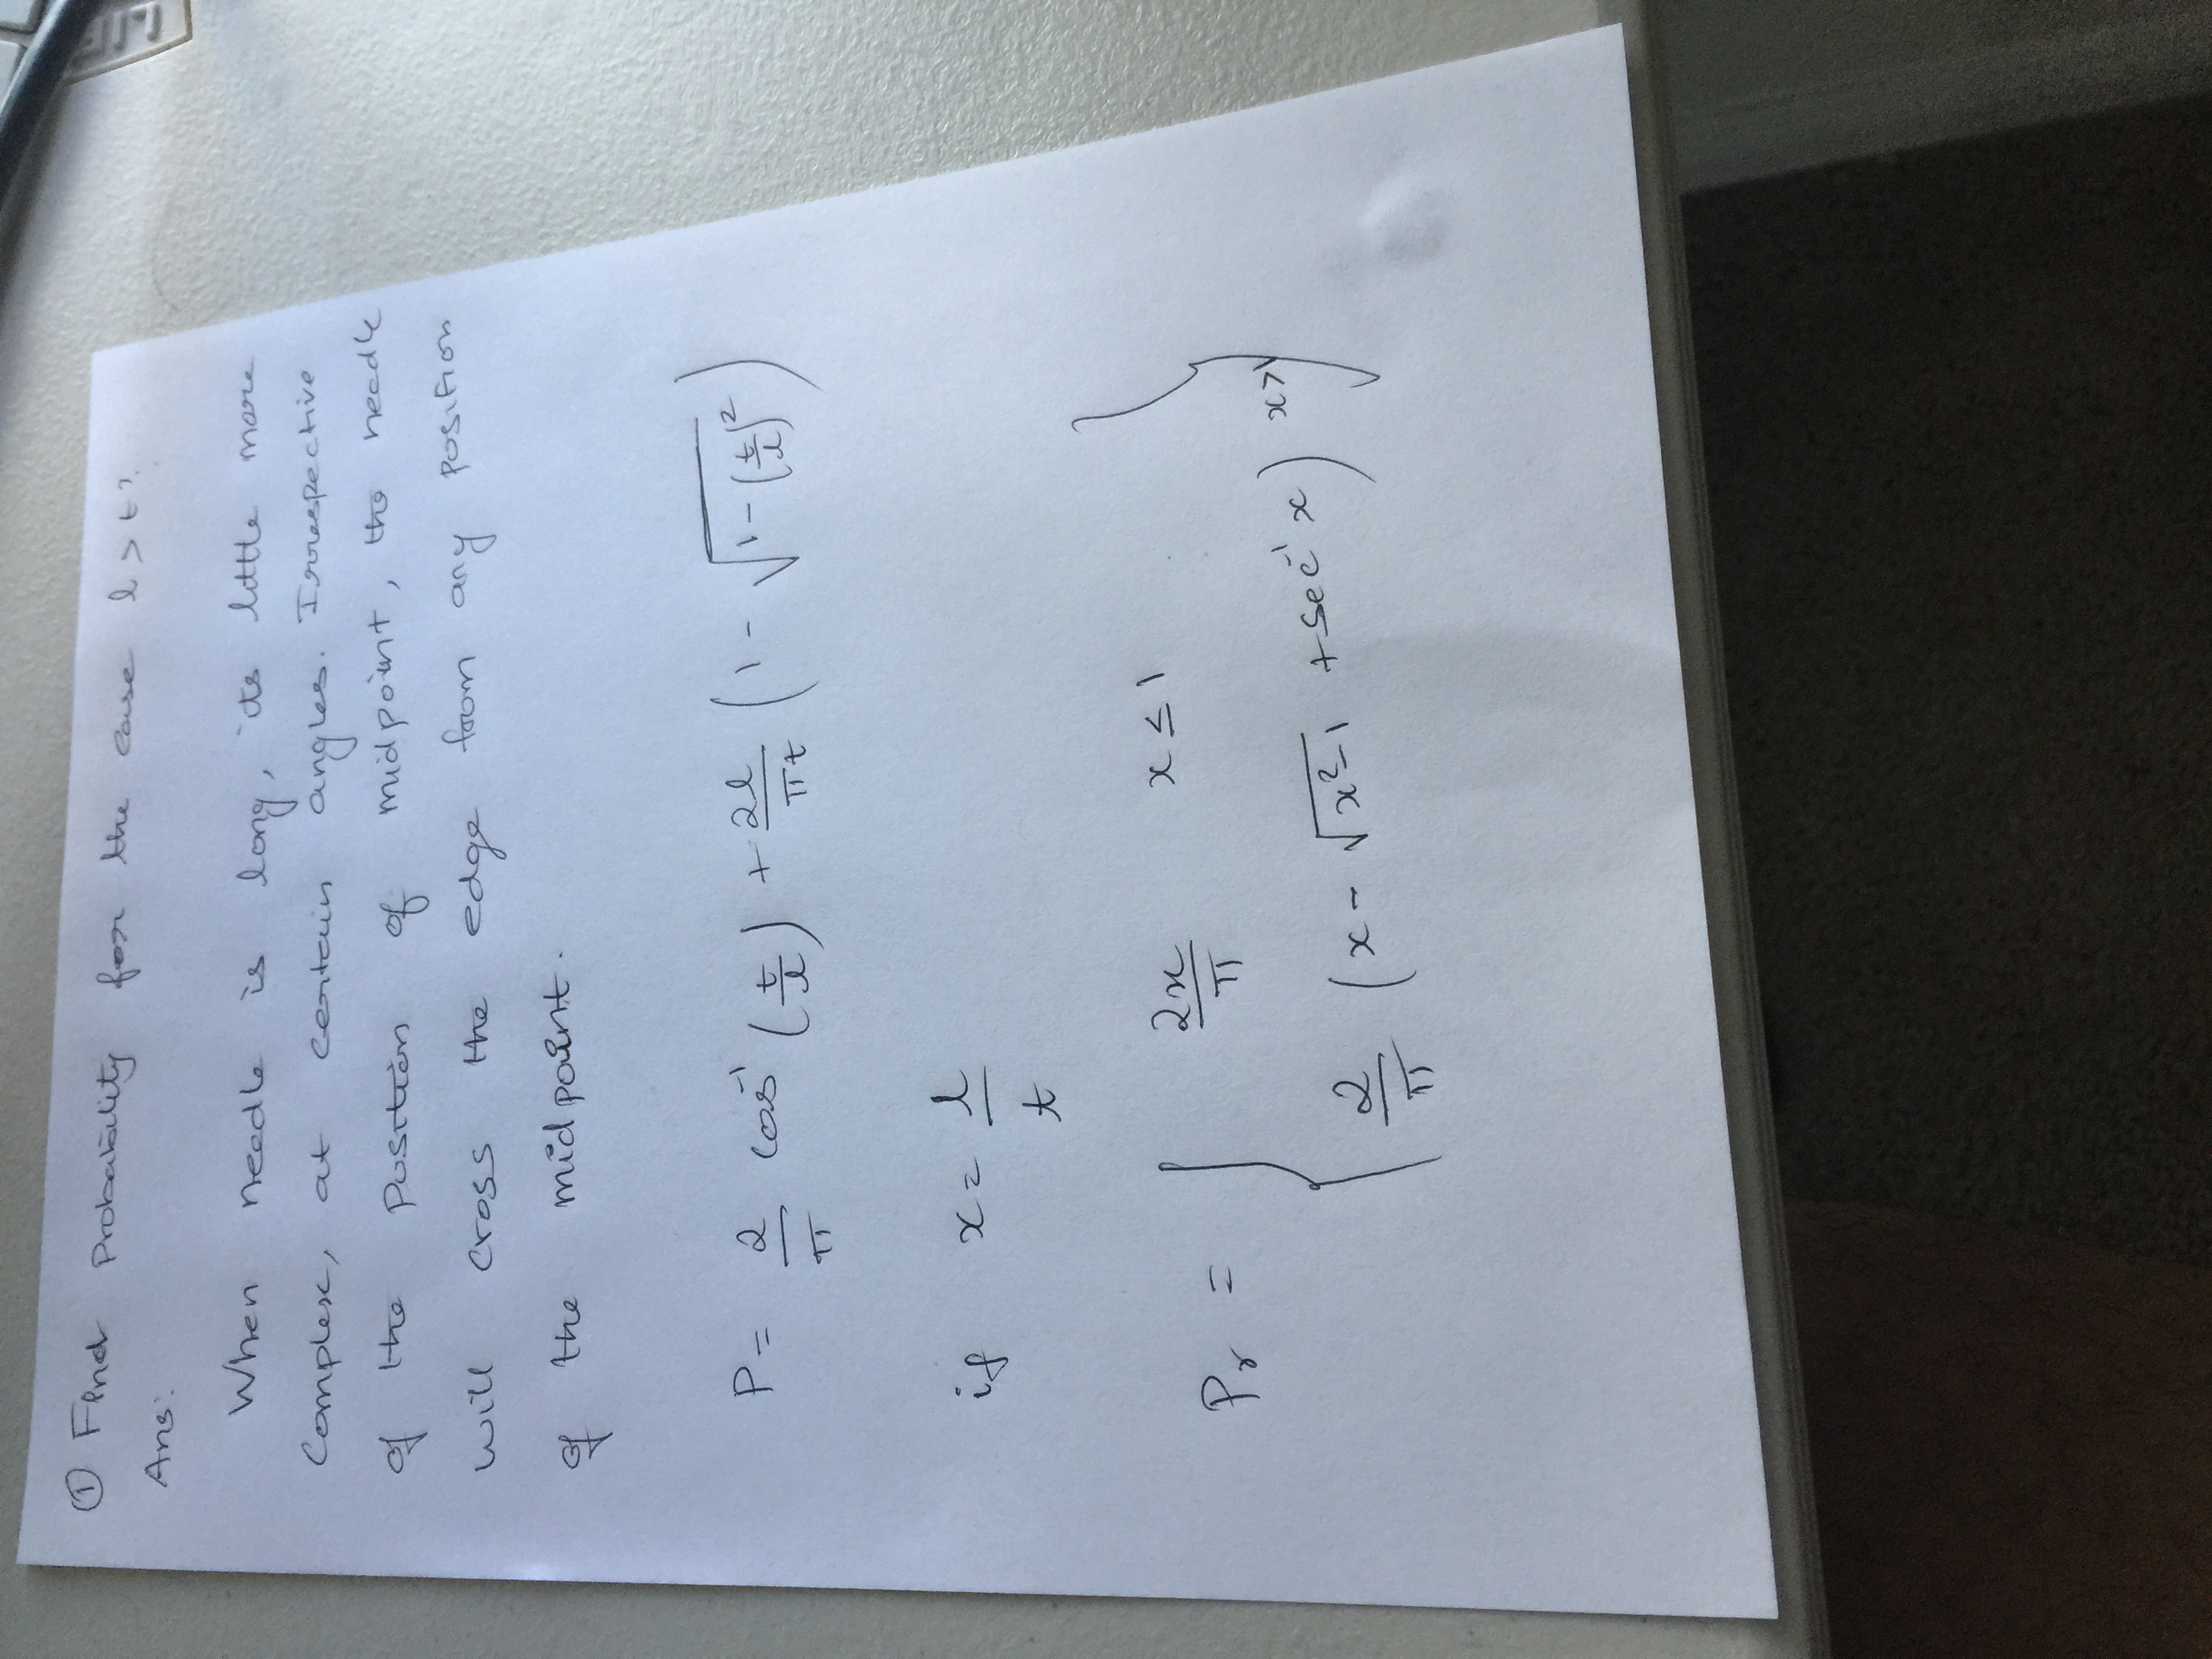 ① Find Probability for the case l > t?
Ans:
When needle is long, its little more
Complex, at certain angles. Irrespective
of the Position of midpoint, the needle
will cross the edge from any position
of the midpoint.
P = 2/π cos⁻¹ (t/l) + 2l/πt (1 - √(1-(t/l)²))
if x = l/t
Pr = { 2x/π x ≤ 1
2/π (x - √(x²-1) + sec⁻¹ x) x>1 }